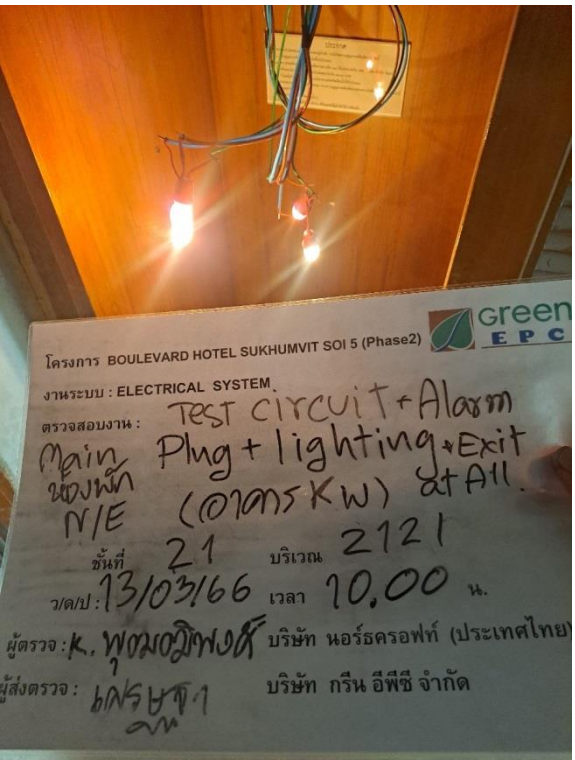 ประกาศ
Green
EPC
โครงการ BOULEVARD HOTEL SUKHUMVIT SOI 5 (Phase2)
งานระบบ : ELECTRICAL SYSTEM
ตรวจสอบงาน : TEST circuit + Alarm
Main Plug + lighting + Exit
ห้องพัก (อาคาร KW) at All.
N/E
ชั้นที่ 21 บริเวณ 2121
ว/ด/ป : 13/03/66 เวลา 10.00 น.
ผู้ตรวจ : K. บริษัท นอร์ธครอฟท์ (ประเทศไทย)
ผู้ส่งตรวจ : เศรษฐา บริษัท กรีน อีพีซี จำกัด